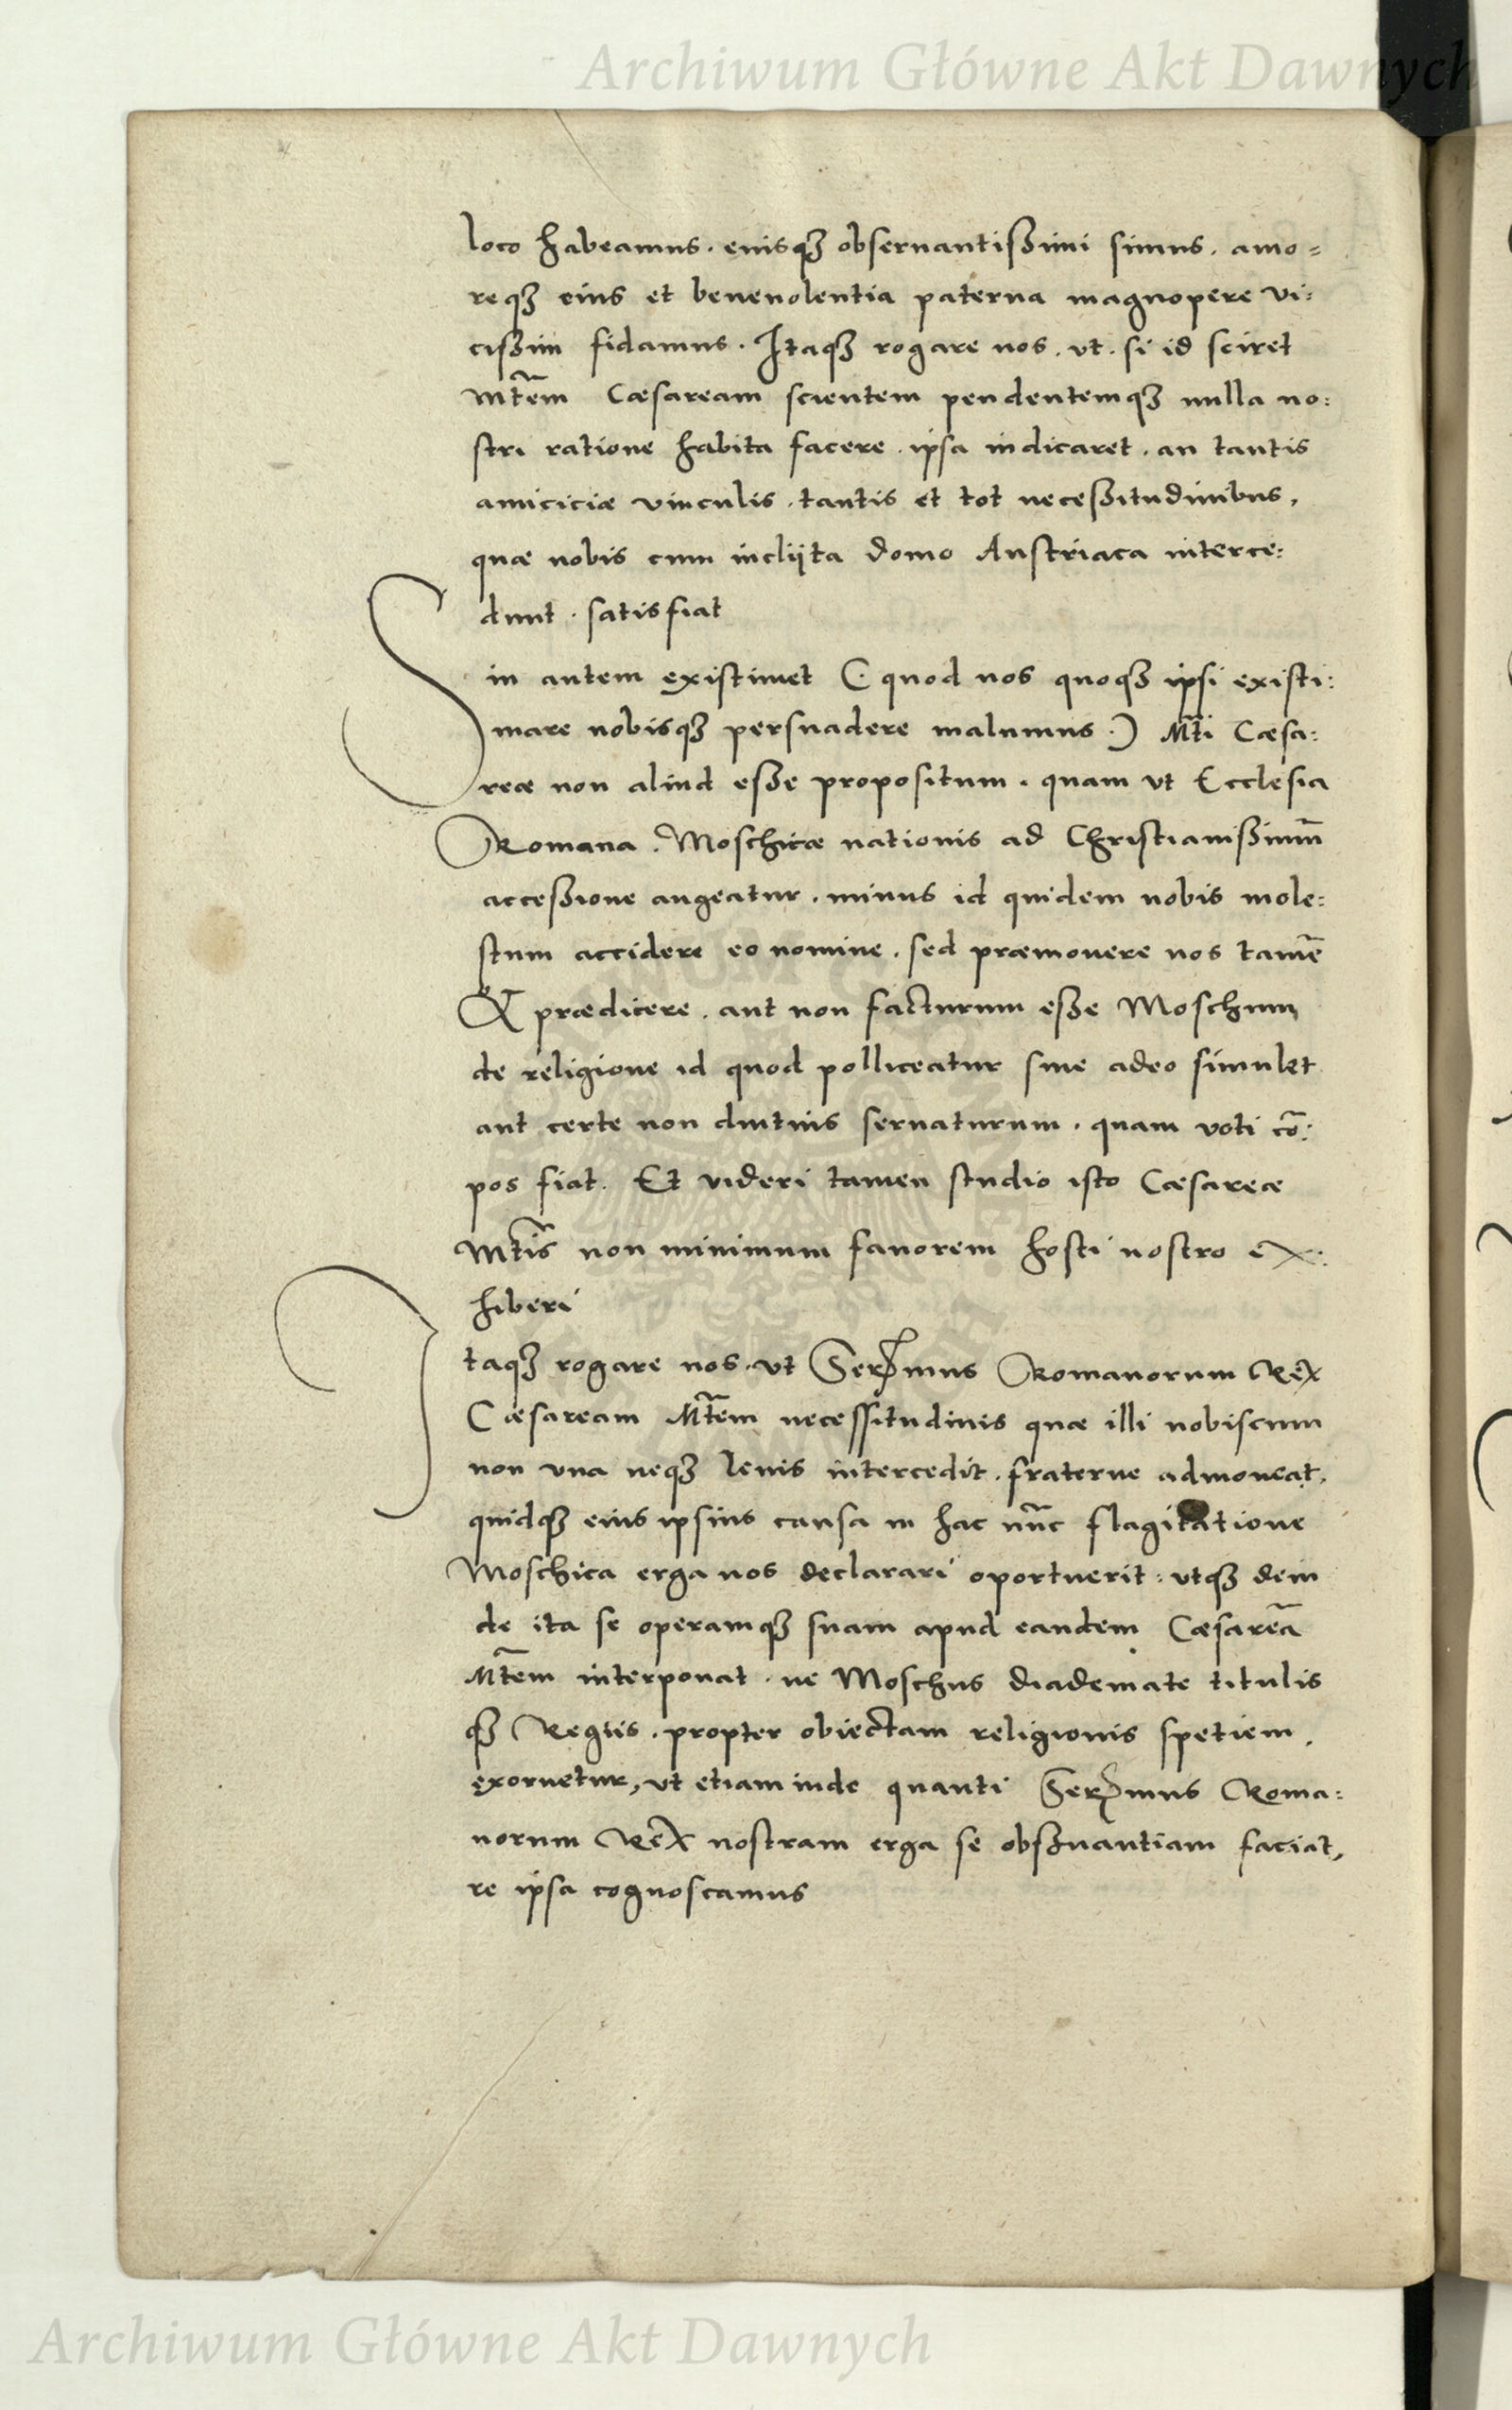 Archiwum Główne Akt Dawnych
loco habeamus. eiusqȝ obseruantißimi simus. amo=
reqȝ eius et beneuolentia paterna magnopere vi:
cißim fidamus. Itaqȝ rogare nos. vt. si id sciret
Mtẽm Cæsaream scientem pendentemqȝ nulla no:
stri ratione habita facere. ipsa indicaret. an tantis
amiciciæ vinculis. tantis et tot neceßitudinibus,
quæ nobis cum inclijta domo Austriaca interce:
dunt. satisfiat
Sin autem existimet (. quod nos quoqȝ ipsi existi:
mare nobisqȝ persuadere malumus.) Mti Cæsa:
reæ non aliud eße propositum. quam vt Ecclesia
Romana. Moschicæ nationis ad Christianißimum̃
acceßione augeatur. minus id quidem nobis mole:
stum accidere eo nomine. sed præmonere nos tamẽ
& prædicere. aut non facturum eße Moschum
de religione id quod polliceatur siue adeo simulet
aut certe non diutius seruaturum. quam voti cõ:
pos fiat. Et videri tamen studio isto Cæsareæ
Mtis non minimum fauorem hosti nostro ex:
hiberi
Itaqȝ rogare nos. vt Serᵐmus Romanorum Rex
Cæsaream Mtẽm necessitudinis quæ illi nobiscum
non vna neqȝ leuis intercedit. fraterne admoneat,
quidqȝ eius ipsius causa in hac nũc flagitatione
Moschica erga nos declarari oportuerit: vtqȝ dein
de ita se operamqȝ suam apud eandem Cæsareã
Mtẽm interponat. ne Moschus diademate titulis
qȝ Regiis. propter obiectam religionis spetiem,
exornetur, vt etiam inde quanti Serᵐmus Roma:
norum Rex nostram erga se obsȝuantiam faciat,
re ipsa cognoscamus
Archiwum Główne Akt Dawnych